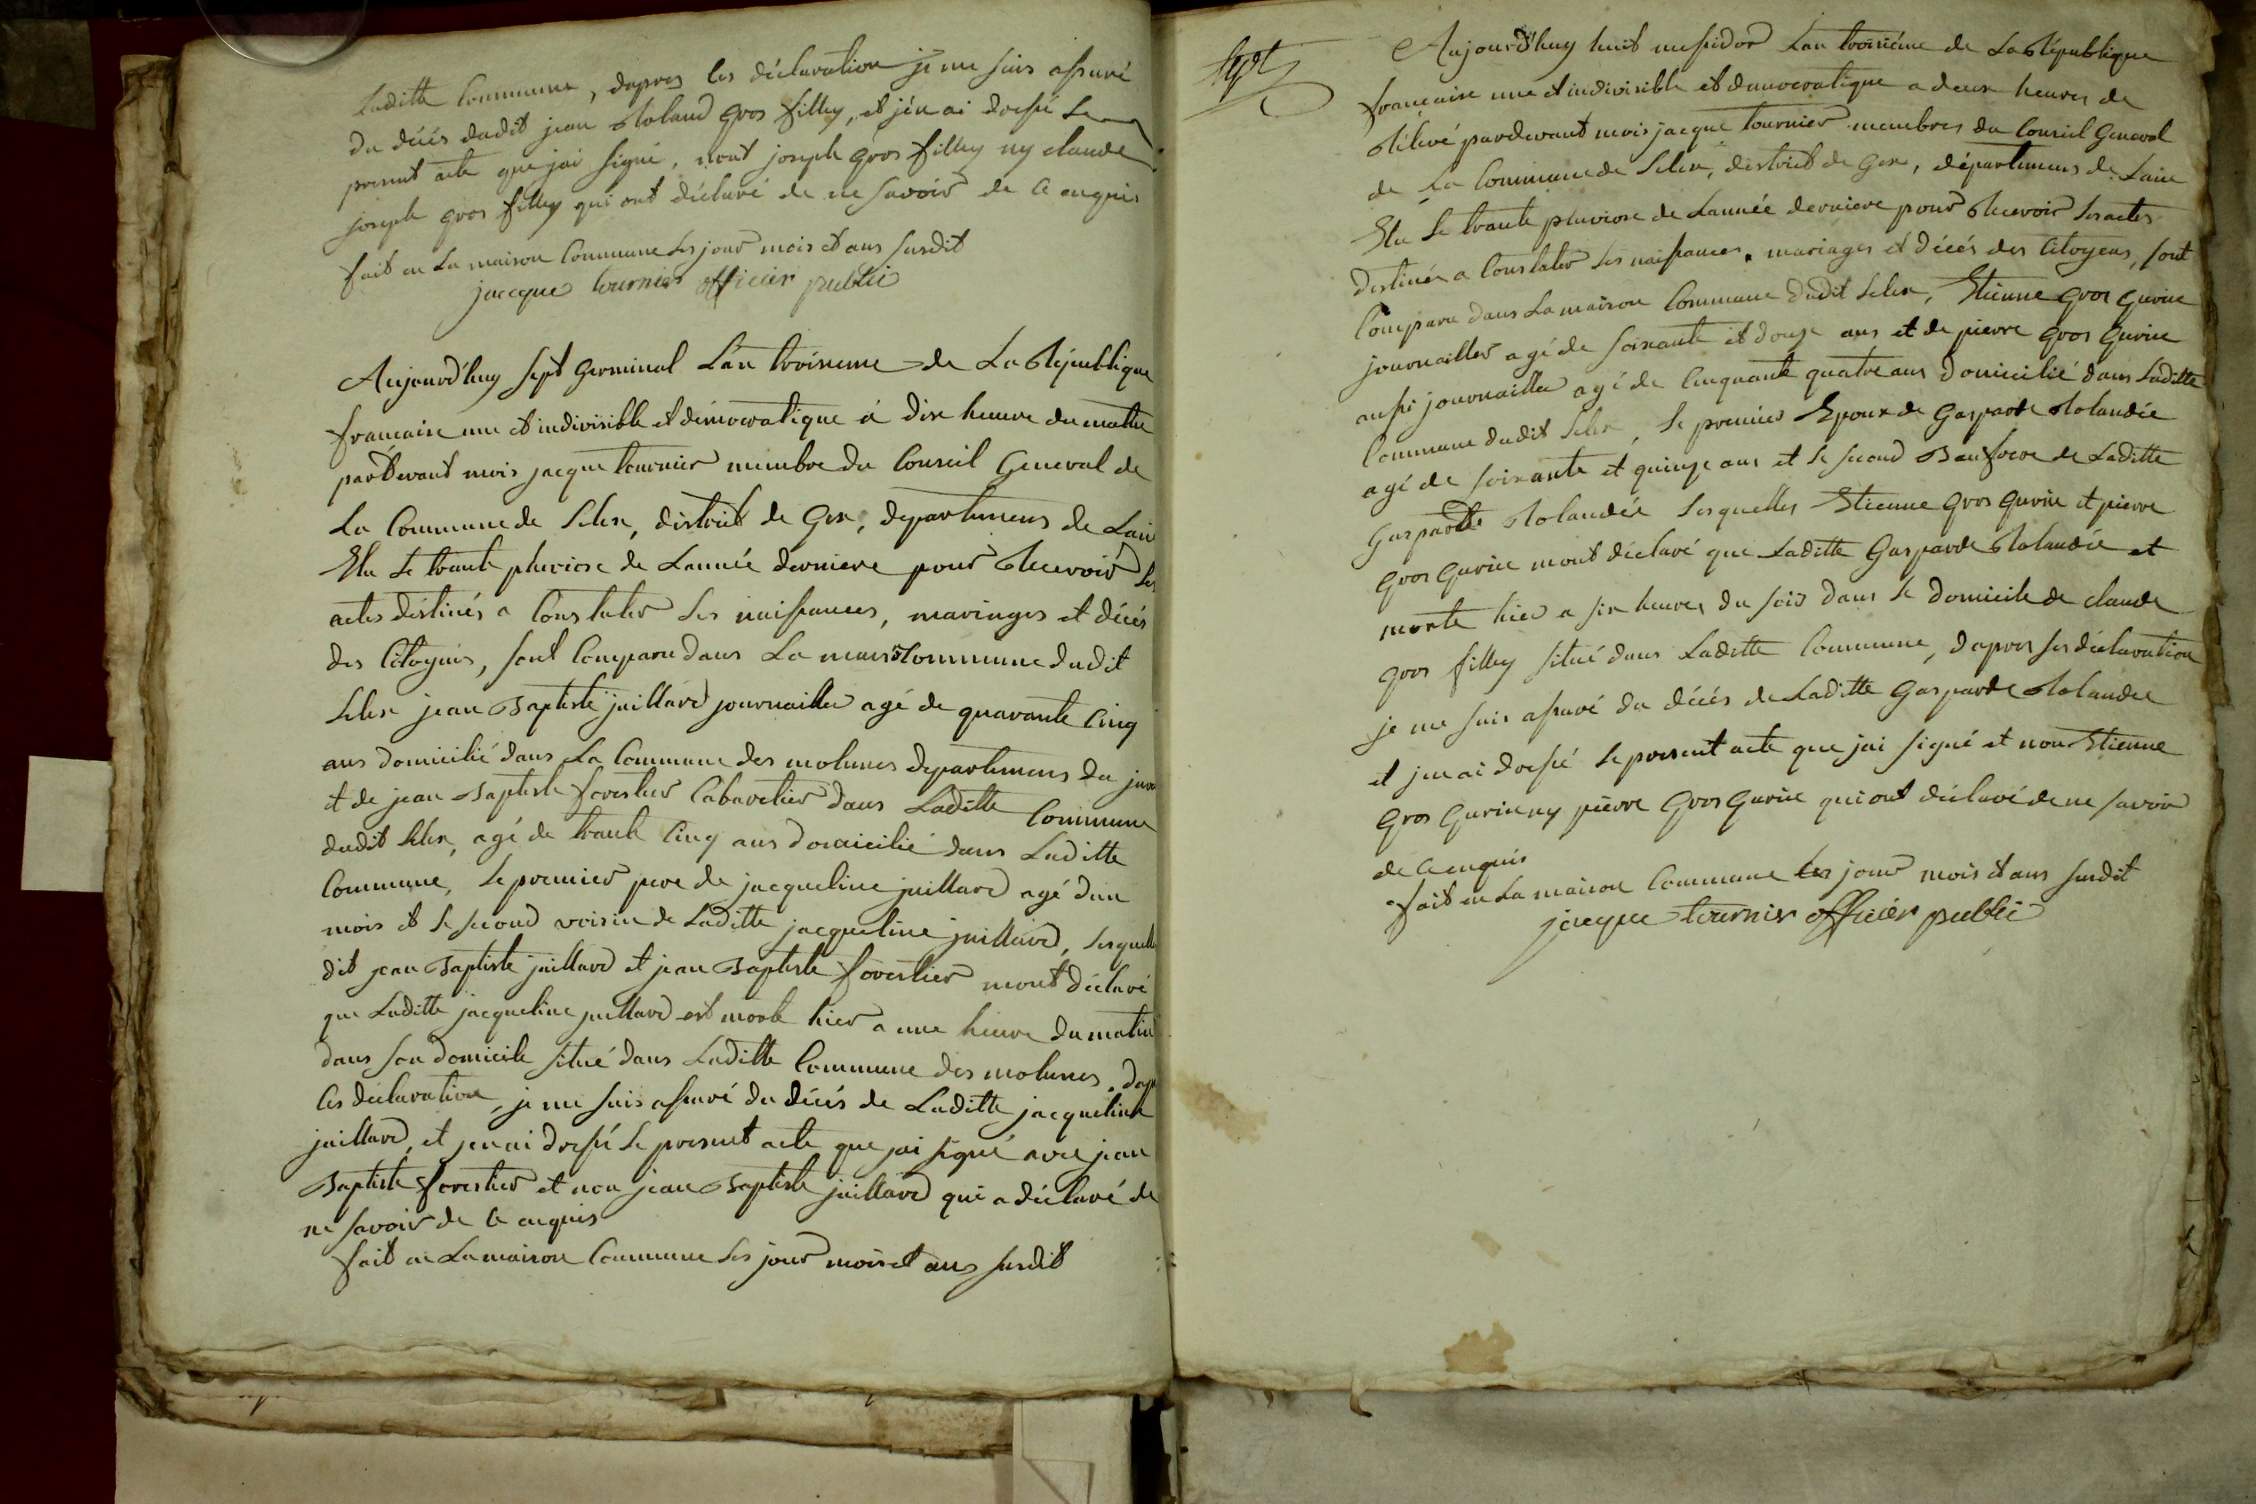 laditte Commune, dapres les déclaration je me suis assuré
du décés dudit jean Roland gros fillex, et jén ai dressé le
present acte que jai signé, nont joseph gros filley ny claude
joseph gros filley qui ont déclaré de ne savoir de ce enquis
fait en La maison Commune les jour mois et ans susdit
jacque tournier officier public
Aujourd'huy sept germinal L'an troisieme de La République
francaise une et indivisible et démocratique á dix heure du matin
pardevant mois jacque tournier membre du Conseil General de
La Commune de Lelex, district de Gex, departemens de Lain
Elu le trante pluviose de Lannée derniere pour Recevoir les
actes déstinés a Constater les naissances, mariages et décés
des Citoyens, sont Comparu dans La maison Commune dudit
Lelex jean Baptiste juillard journailler agé de quarante Cinq
ans domicilié dans La Commune des molunes departemens du jura
et de jean Baptiste forestier Cabaretier dans Laditte Commune
dudit Lelex, agé de trante Cinq ans domicilié dans Laditte
Commune, le premier pere de jacqueline juillard agé dun
mois et le second voisin de Laditte jacqueline juillard, lesquelle
dit jean Baptiste juillard et jean Baptiste forestier mont déclaré
que Laditte jacqueline juillard est morte hier a une heure du matin
dans son domicile situé dans Laditte Commune des molunes. dapr
les déclaration, je me suis assuré du décés de Laditte jacqueline
juillard, et jen ai dressé le present acte que jai signé avec jean
Baptiste forestier et non jean Baptiste juillard qui a déclaré de
ne savoir de ce enquis
fait en La maison Commune les jour mois et ans susdit
Aujourd'huy huit messidor Lan troisiéme de La République
française une et indivisible et démocratique a deux heures de
Rélevé pardevant mois jacque tournier membres du Conseil General
de La Commune de Lelex, district de Gex, départemens de Lain
Elu le trante pluviose de Lannée derniere pour Recevoir les actes
destinés a Constater les naissances, mariages et décés des Citoyens, sont
Comparu dans La maison Commune dudit Lelex, Etienne gros gurin
journailler agé de soixante et douze ans et de pierre gros gurin
aussi journailler agé de Cinquante quatre ans domicilié dans Laditte
Commune dudit Lelex, le premier Epoux de Gasparde Rolandée
agé de soixante et quinze ans et le second Beaufrere de Laditte
Gasparde Rolandée lesquelles Etienne gros gurin et pierre
gros gurin mont déclaré que Laditte Gasparde Rolandée et
morte hier a six heures du soir dans le domicile de claude
gros filley situé dans Laditte Commune, dapres les déclaration
je me suis assuré du décés de Laditte Gasparde Rolandée
et jen ai dressé le present acte que jai signé et non Etienne
gros gurin ny pierre gros gurin qui ont déclaré de ne savoir
de ce enquis
fait en La maison Commune les jour mois et ans susdit
jacque tournier officier public